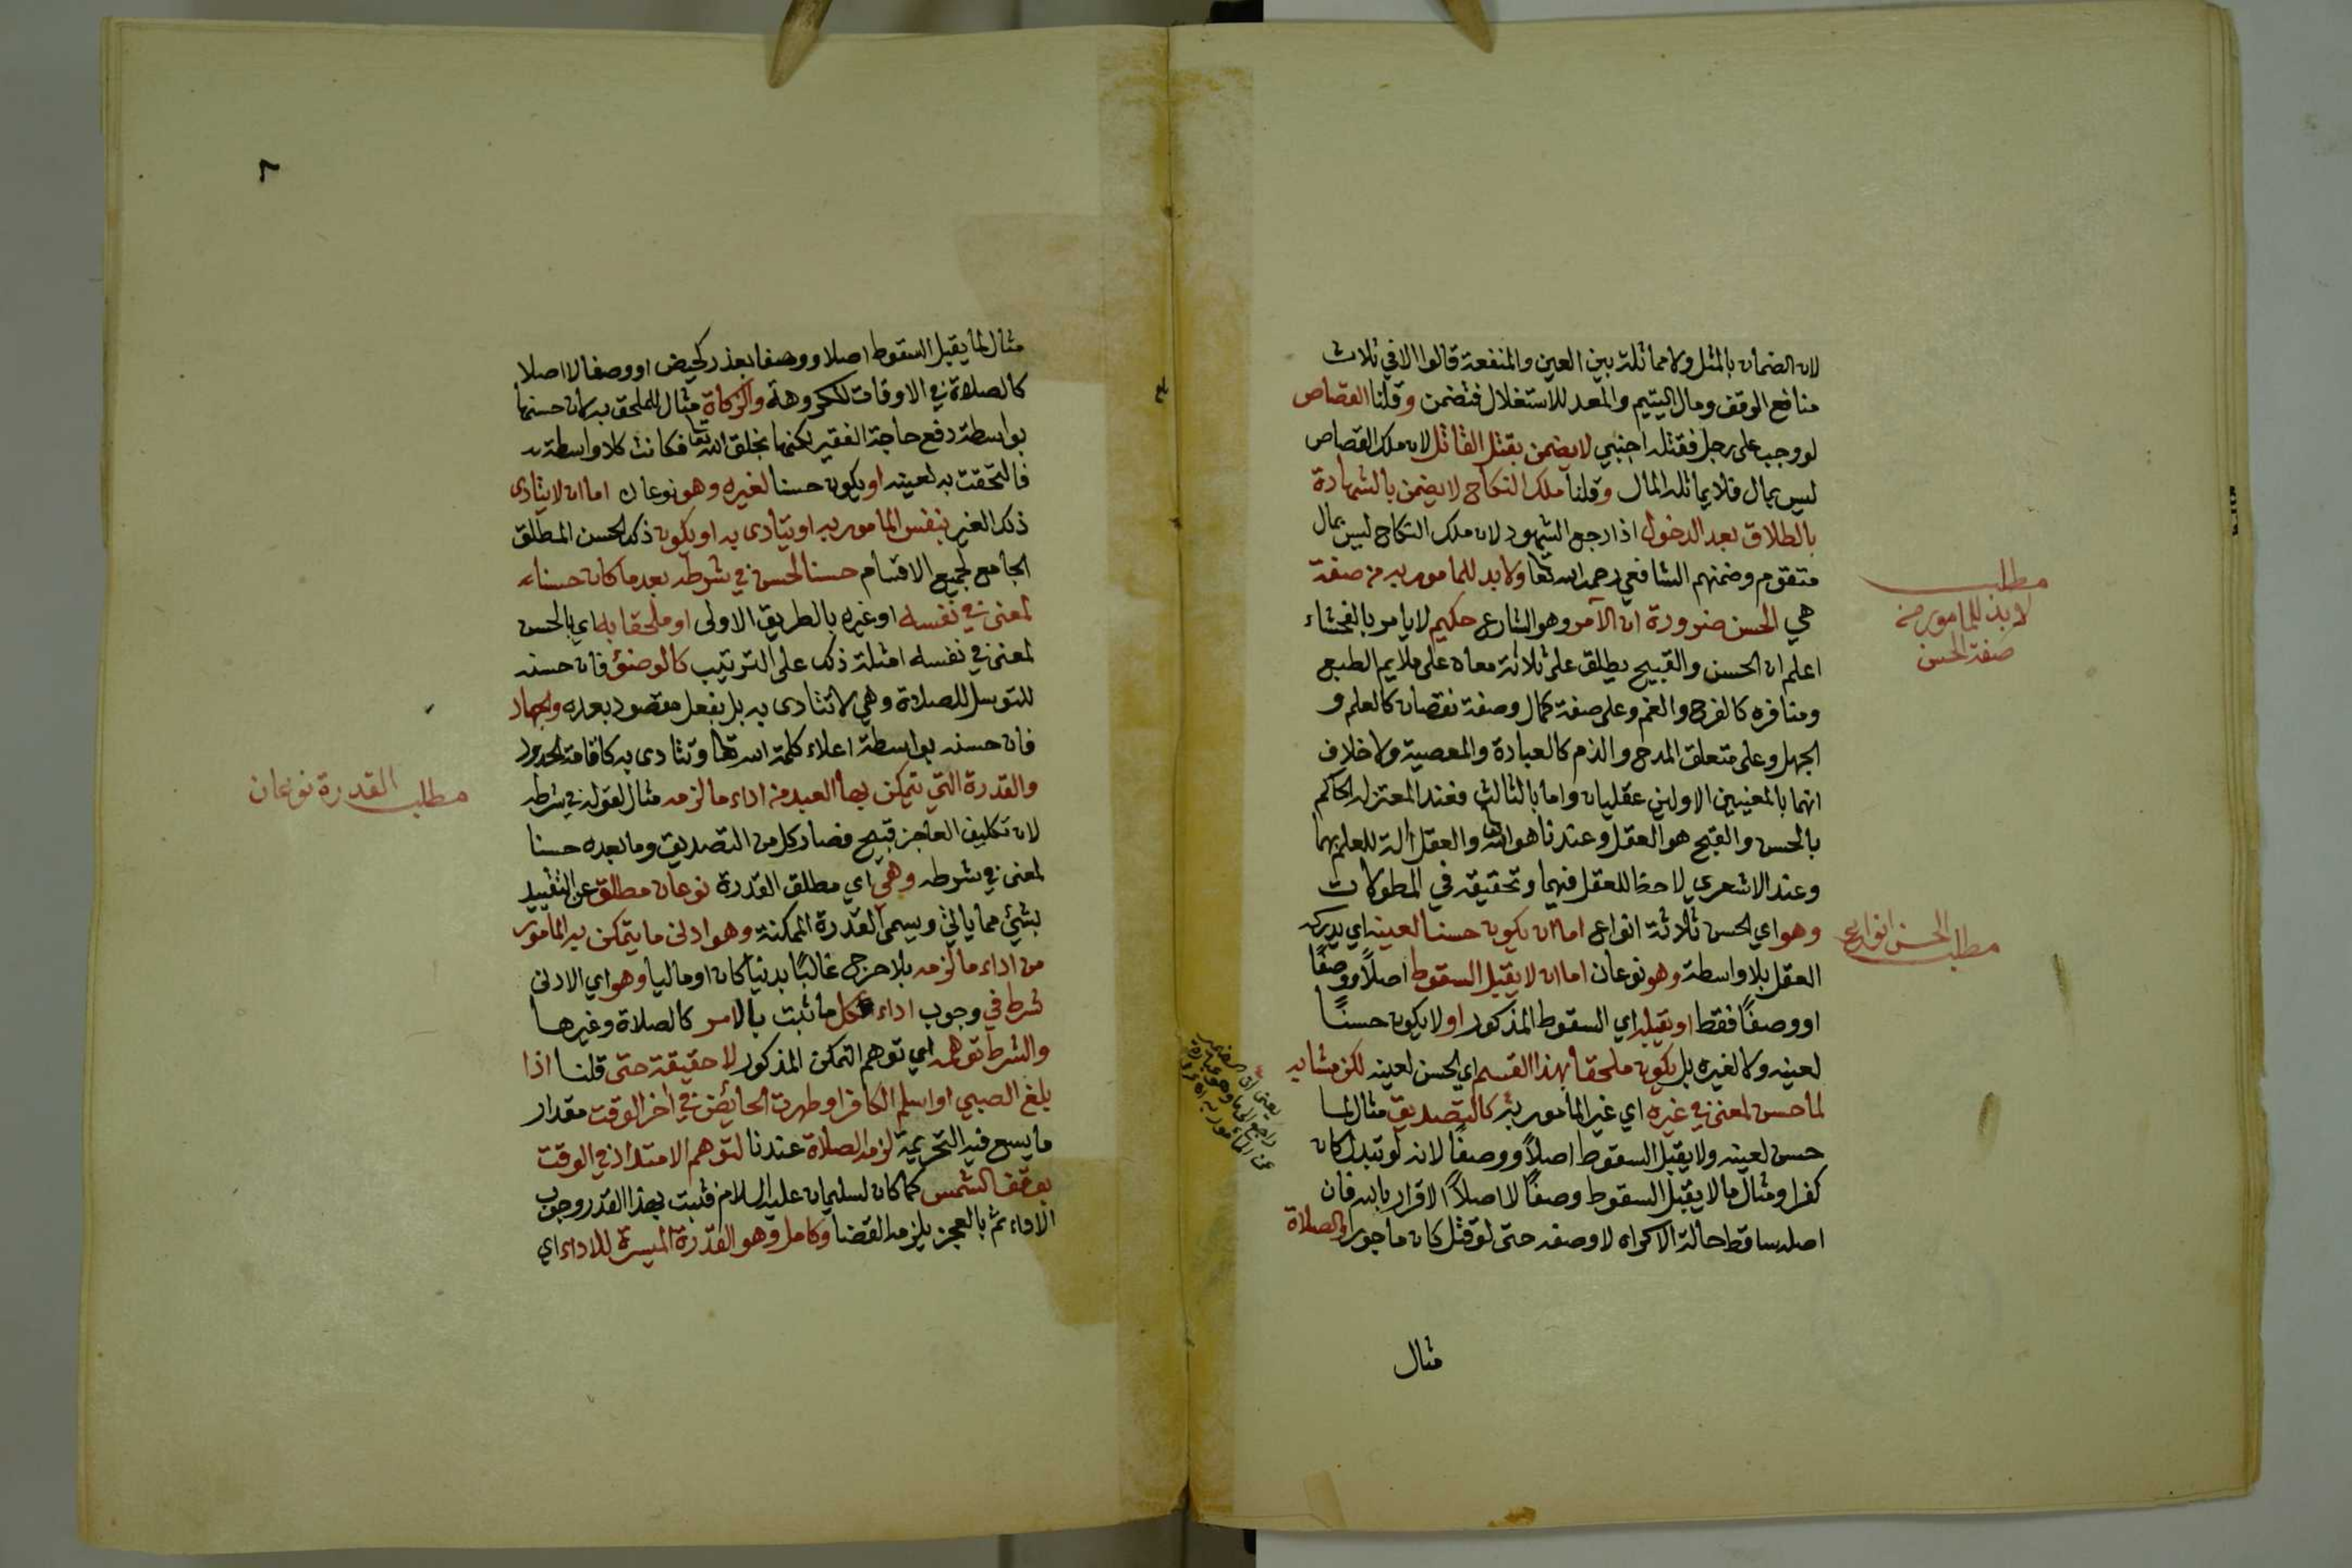 لان الضمان بالمثل ولا مماثلة بين العين والمنفعة قالوا الا في ثلاث
منافع الوقف ومال اليتيم والمعد للاستغلال فتضمن وقلنا القصاص
لو وجب على رجل فقتله اجنبي لا يضمن بقتل القاتل لان ملك القصاص
ليس بمال فلا يماثله المال وقلنا ملك النكاح لا يضمن بالشهادة
بالطلاق بعد الدخول اذا رجع الشهود لان ملك النكاح ليس بمال
متقوم وضمنهم الشافعي رحمه الله تعا ولا بد للمامور به من صفة
هي الحسن ضرورة ان الآمر وهو الشارع حكيم لا يامر بالفحشاء
اعلم ان الحسن والقبيح يطلق على ثلاثة معان على ملايم الطبع
ومنافره كالفرح والغم وعلى صفة كمال وصفة نقصان كالعلم و
الجهل وعلى متعلق المدح والذم كالعبادة والمعصية ولا خلاف
انهما بالمعنيين الاولين عقليان واما بالثالث فعند المعتزله الحاكم
بالحسن والقبح هو العقل وعندنا هو الله تعا والعقل آلة للعلم بهما
وعند الاشعري لا حظ للعقل فيهما وتحقيقه في المطولات
وهو اي الحسن ثلاثة انواع اما ان يكون حسنا لعينه اي يدركه
العقل بلا واسطة وهو نوعان اما ان لا يقبل السقوط اصلاً ووصفًا
او وصفًا فقط او يقبله اي السقوط المذكور او لا يكون حسنًا
لعينه ولا لغيره بل يكون ملحقا بهذا القسم اي الحسن لعينه لكن مشابه
لما حسن لمعنى في غيره اي غير المأمور به كالتصديق مثال لما
حسن لعينه ولا يقبل السقوط اصلاً ووصفًا لانه لو تبدل كان
كفرا ومثال ما لا يقبل السقوط وصفًا لا اصلاً الاقرار بالله فان
اصله ساقط حالة الاكراه لا وصفه حتى لو قتل كان ماجورا والصلاة
مثال
مطلب
لا بد للمامور من
صفة الحسن
مطلب الحسن انواع
مثال لما يقبل السقوط اصلا ووصفا بعذر كحيض او وصفا لا اصلا
كالصلاة في الاوقات المكروهة والزكاة مثال للملحق به لان حسنها
بواسطة دفع حاجة الفقير لكنها بخلق الله تعا فكانت كلا واسطة
فالتحقت به لعينه او يكون حسنا لغيره وهو نوعان اما ان لا يتادى
ذلك الغير بنفس المامور به او يتادى به او يكون ذلك الحسن المطلق
الجامع لجميع الاقسام حسنا لحسن في شرطه بعد ما كان حسناء
لمعنى في نفسه او غيره بالطريق الاولى او ملحقا به اي بالحسن
لمعنى في نفسه امثلة ذلك على الترتيب كالوضؤ فان حسنه
للتوسل للصلاة وهي لا تتادى به بل بفعل مقصود بعده والجهاد
فان حسنه بواسطة اعلاء كلمة الله تعا وتتادى به كاقامة الحدود
والقدرة التي يتمكن بها العبد من اداء ما لزمه مثال لقوله في شرطه
لان تكليف العاجز قبيح فصار كل من التصديق وما بعده حسنا
لمعنى في شرطه وهي اي مطلق القدرة نوعان مطلق عن التقييد
بشيئ مما ياتي ويسمى القدرة الممكنة وهو ادنى ما يتمكن به المأمور
من اداء ما لزمه بلا حرج غالبًا بدنيا كان او ماليا وهو اي الادنى
شرط في وجوب اداء كل ما ثبت بالامر كالصلاة وغيرها
والشرط توهمه اي توهم التمكن المذكور لا حقيقته حتى قلنا اذا
بلغ الصبي او اسلم الكافر او طهرت الحائض في اخر الوقت مقدار
ما يسع فيه التحريمة لزمه الصلاة عندنا لتوهم الامتداد في الوقت
بوقف الشمس كما كان لسليمان عليه السلام فثبت بهذا القدر وجوب
الاداء ثم بالعجز يلزمه القضا وكامل وهو القدرة الميسرة للاداء اي
مطلب القدرة نوعان